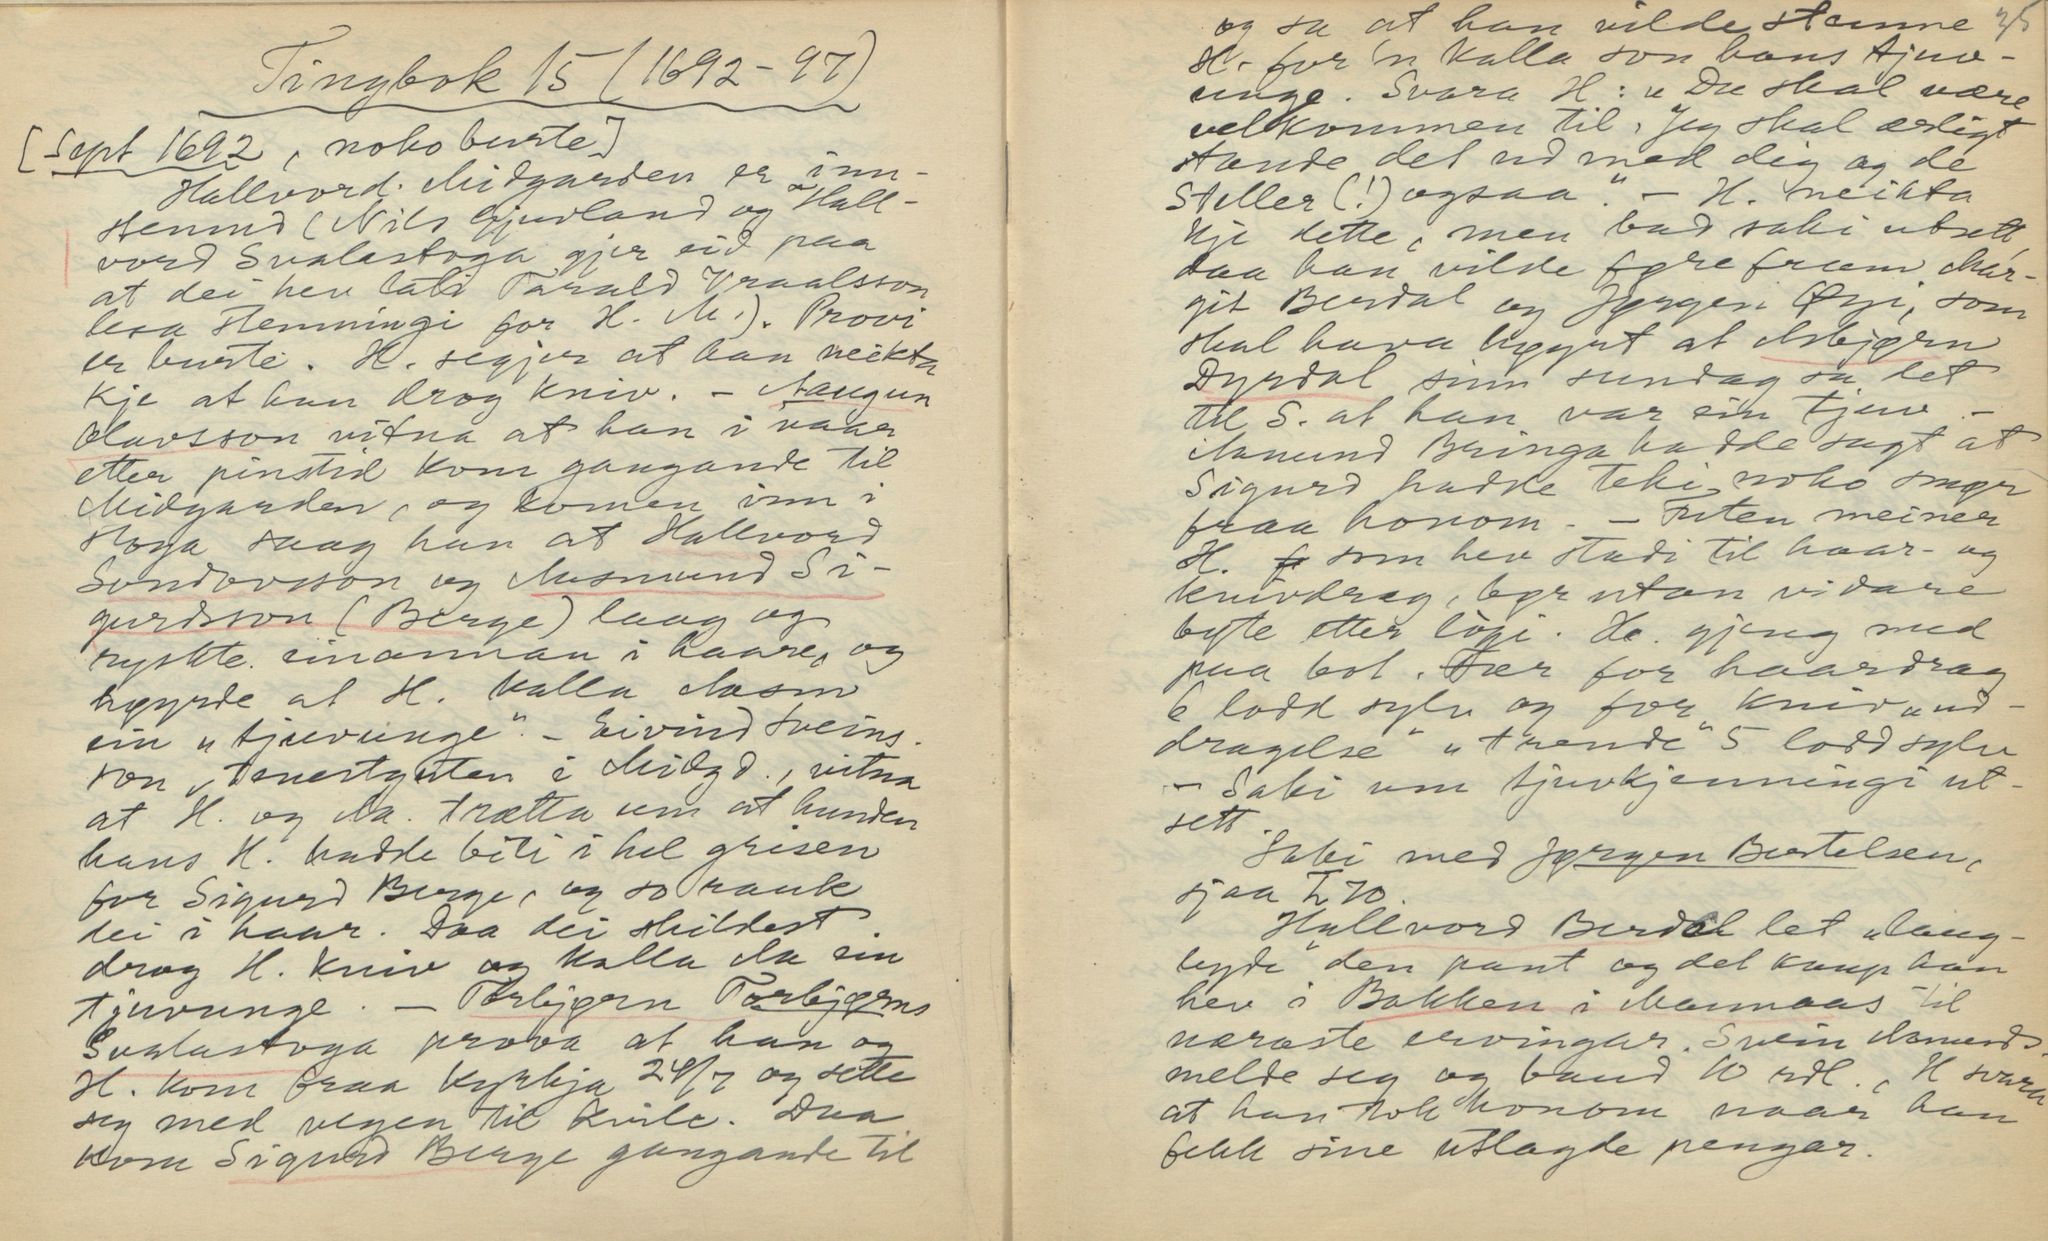 Tingbok 15 (1692-97)
[Sept 1692, noko burte]
Hallvord Midgarden er inn-
stemnd (Nils Gjuvland og Hall-
vord Svalastoga gjer eid paa
at dei hev lati Tarald Kraalsson
lesa stemningi for H. M.). Provi
er burte. H. segjer at han neikta
kje at han drog kniv. - Aaugun
Olavsson vitna at han i vaar
etter pinstid kom gangande til
Midgarden, og komen inn i
stoga saag han at Hallvord
Sondovsson og Aasmund Si-
gurdsson (Berge) laag og
ryskte einannan i haare, og
høyrde at H. kalla Aasm
ein „tjuvunge". - Eivind Sveins-
son, tenestguten i Midgd., vitna
at H. og Aa. trætta um at hunden
hans H. hadde biti i hel grisen
for Sigurd Berge, og so rauk
dei i haar. Daa dei skildest
drog H. kniv og kalla Aa ein
tjuvunge. - Torbjørn Torbjørns
Svalastoga prova at han og
H. kom fraa kyrkja 24/7 og sette
seg med vegen til kvile. Daa
kom Sigurd Berge gangande til
25
og sa at han vilde stemne
H. for 'n kalla son hans tjuv-
unge. Svara H: „Du skal være
velkommen til, Jeg skal ærligt
stande det ud med dig og de
Steller (!) ogsaa". - H. neikta
kje dette, men bad saki utsett,
daa han vilde føre fram Mar-
git Berdal og Jørgen Øyi, som
skal hava høyrt at Asbjørn
Dyrdal sinn sundag sa det
til S. at han var ein tjuv. -
Aamund Bringa hadde sagt at
Sigurd hadde teki noko smør
fraa honom. - Futen meiner
H. som hev stadi til haar- og
knivdrag, bør utan vidare
bøte etter lògi. H. gjeng med
paa bot. Fær for haardrag
6 lodd sylv og for kniv „ud-
dragelse" „trende" 5 lodd sylv
- Saki um tjuvkjenningi ut-
sett.
Saki med Jørgen Bertelsen,
sjaa I 70.
Hallvord Berdal let „laug-
byde" den pant og det kaup han
hev i Bakken i Mannaas til
næraste ervingar. Svein Aamunds.
melde seg og baud 10 rdl., H svara
at han tok honom naar han
fekk sine utlagde pengar.